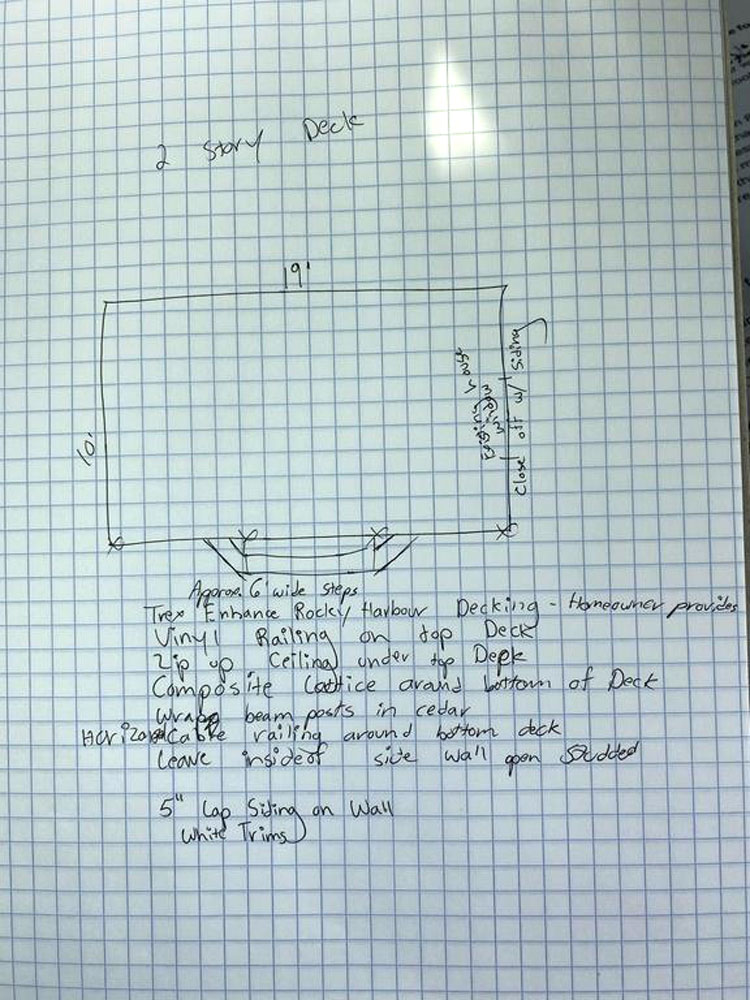 2 Story Deck
19'
10'
Close off w/ Siding
Existing window
Approx. 6' wide steps
Trex Enhance Rocky Harbour Decking - Homeowner provides
Vinyl Railing on top Deck
Zip up Ceiling under top Deck
Composite Lattice around bottom of Deck
Wrap beam posts in cedar
Horizontal Cable railing around bottom deck
Leave inside of side wall open Studded
5" Lap Siding on Wall
White Trims